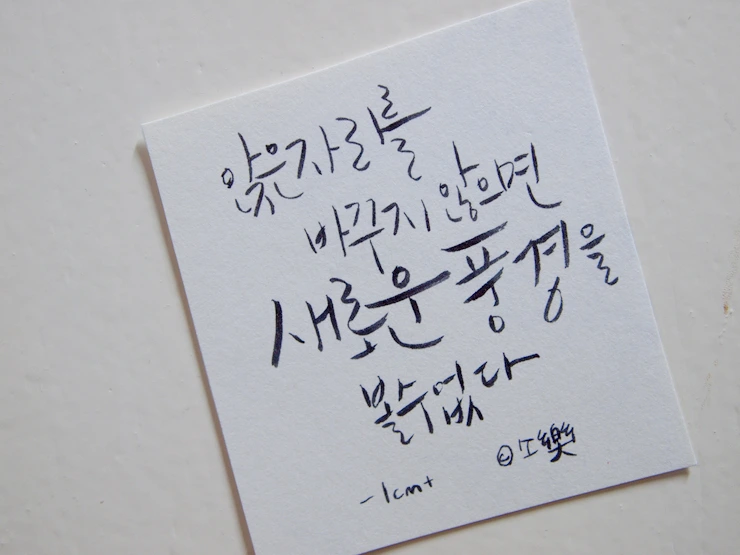 앉은 자리를
바꾸지 않으면
새로운 풍경을
볼 수 없다
- 1cm+